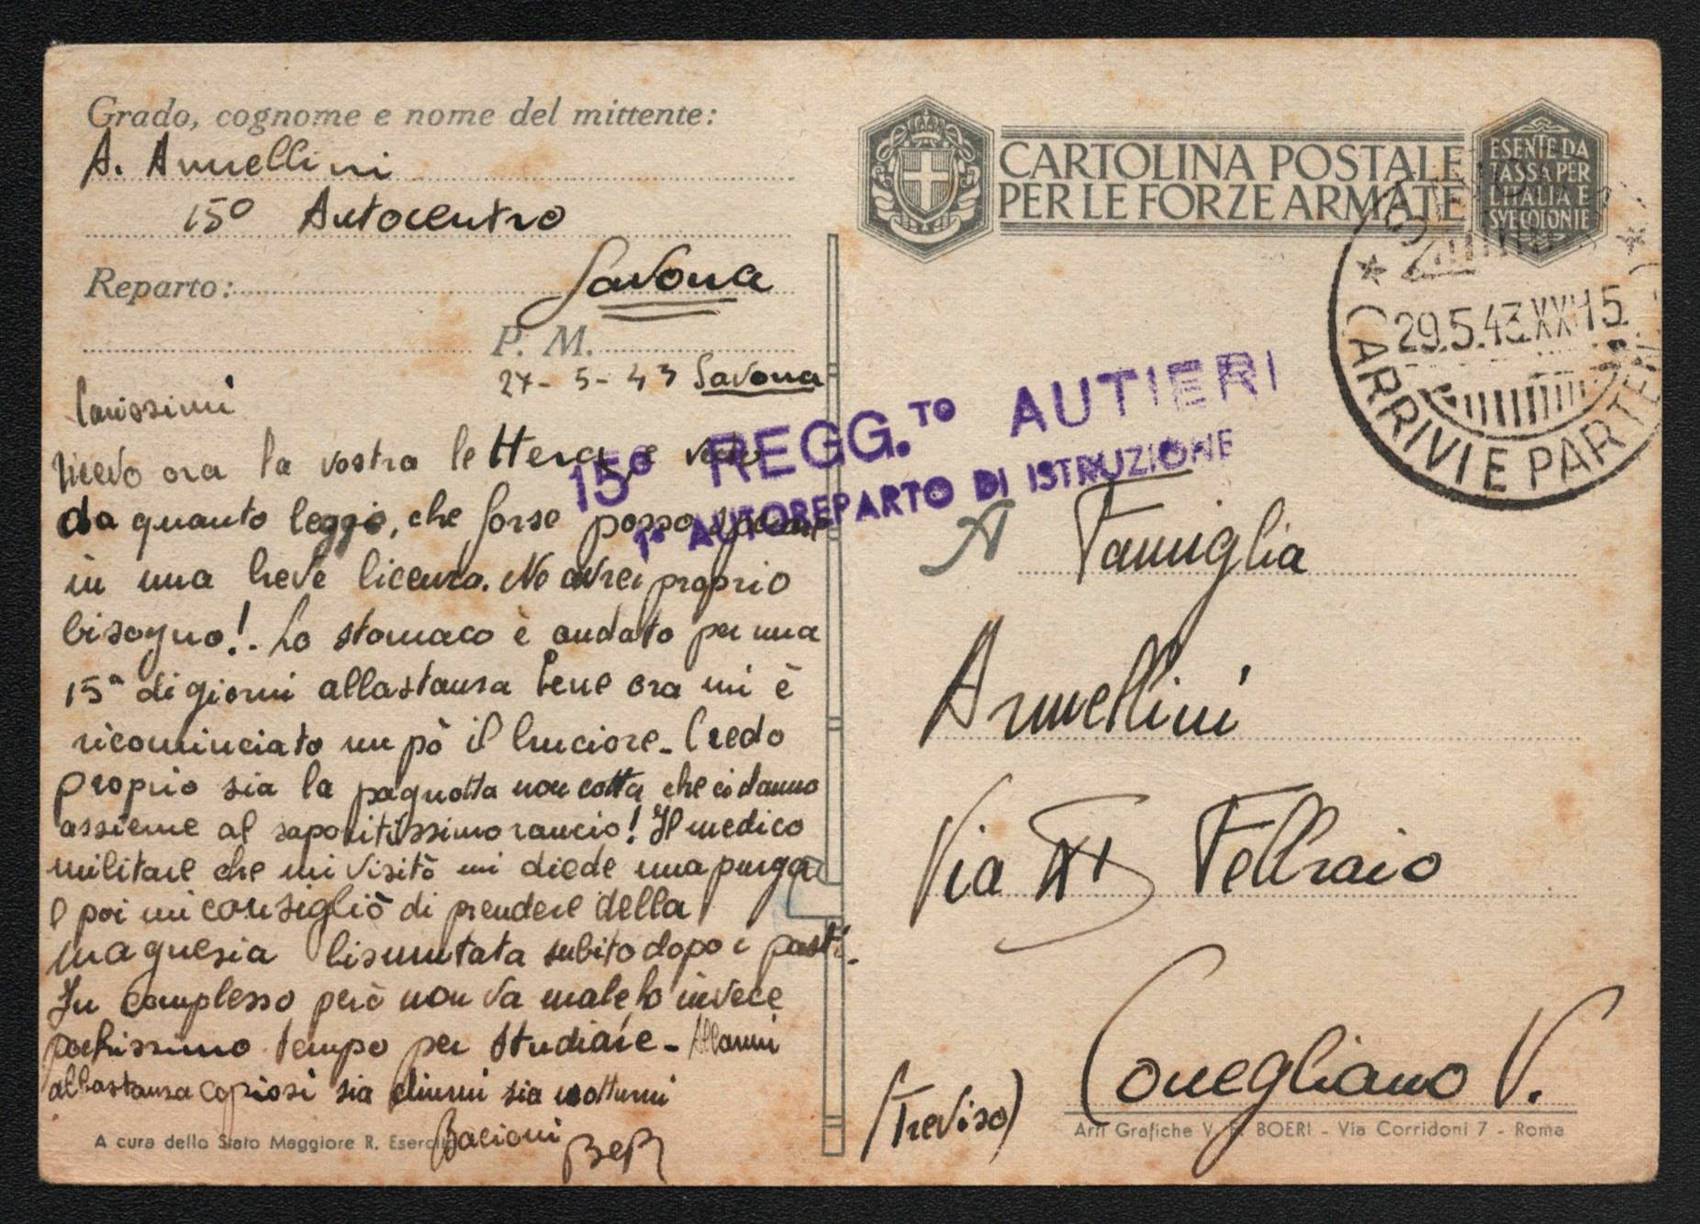 Grado, cognome e nome del mittente:
A. Armellini
15º Autocentro
Reparto:
Savona
P. M.
27-5-43 Savona
Carissimi
ricevo ora la vostra lettera e vedo
da quanto leggo, che forse posso sperare
in una breve licenza. Ne avrei proprio
bisogno!. Lo stomaco è andato per una
15ª di giorni allastanza bene ora mi è
ricominciato un pò il bruciore - Credo
proprio sia la pagnotta non cotta che ci danno
assieme al saporitissimo rancio! Il medico
militare che mi visitò mi diede una purga
e poi mi consigliò di prendere della
magnesia bismutata subito dopo i pasti -
In complesso però non va male ho invece
pochissimo tempo per studiare - Allarmi
abbastanza copiosi sia diurni sia notturni
Bacioni Bepi
A cura dello Stato Maggiore R. Esercito
CARTOLINA POSTALE
PER LE FORZE ARMATE
ESENTE DA
TASSA PER
L'ITALIA E
SUE COLONIE
29.5.43.XXI 15
ARRIVI E PARTENZE
15º REGG.TO AUTIERI
1º AUTOREPARTO DI ISTRUZIONE
A Famiglia
Armellini
Via XI Febbraio
Conegliano V.
(Treviso)
Arti Grafiche V. E. BOERI - Via Corridoni 7 - Roma